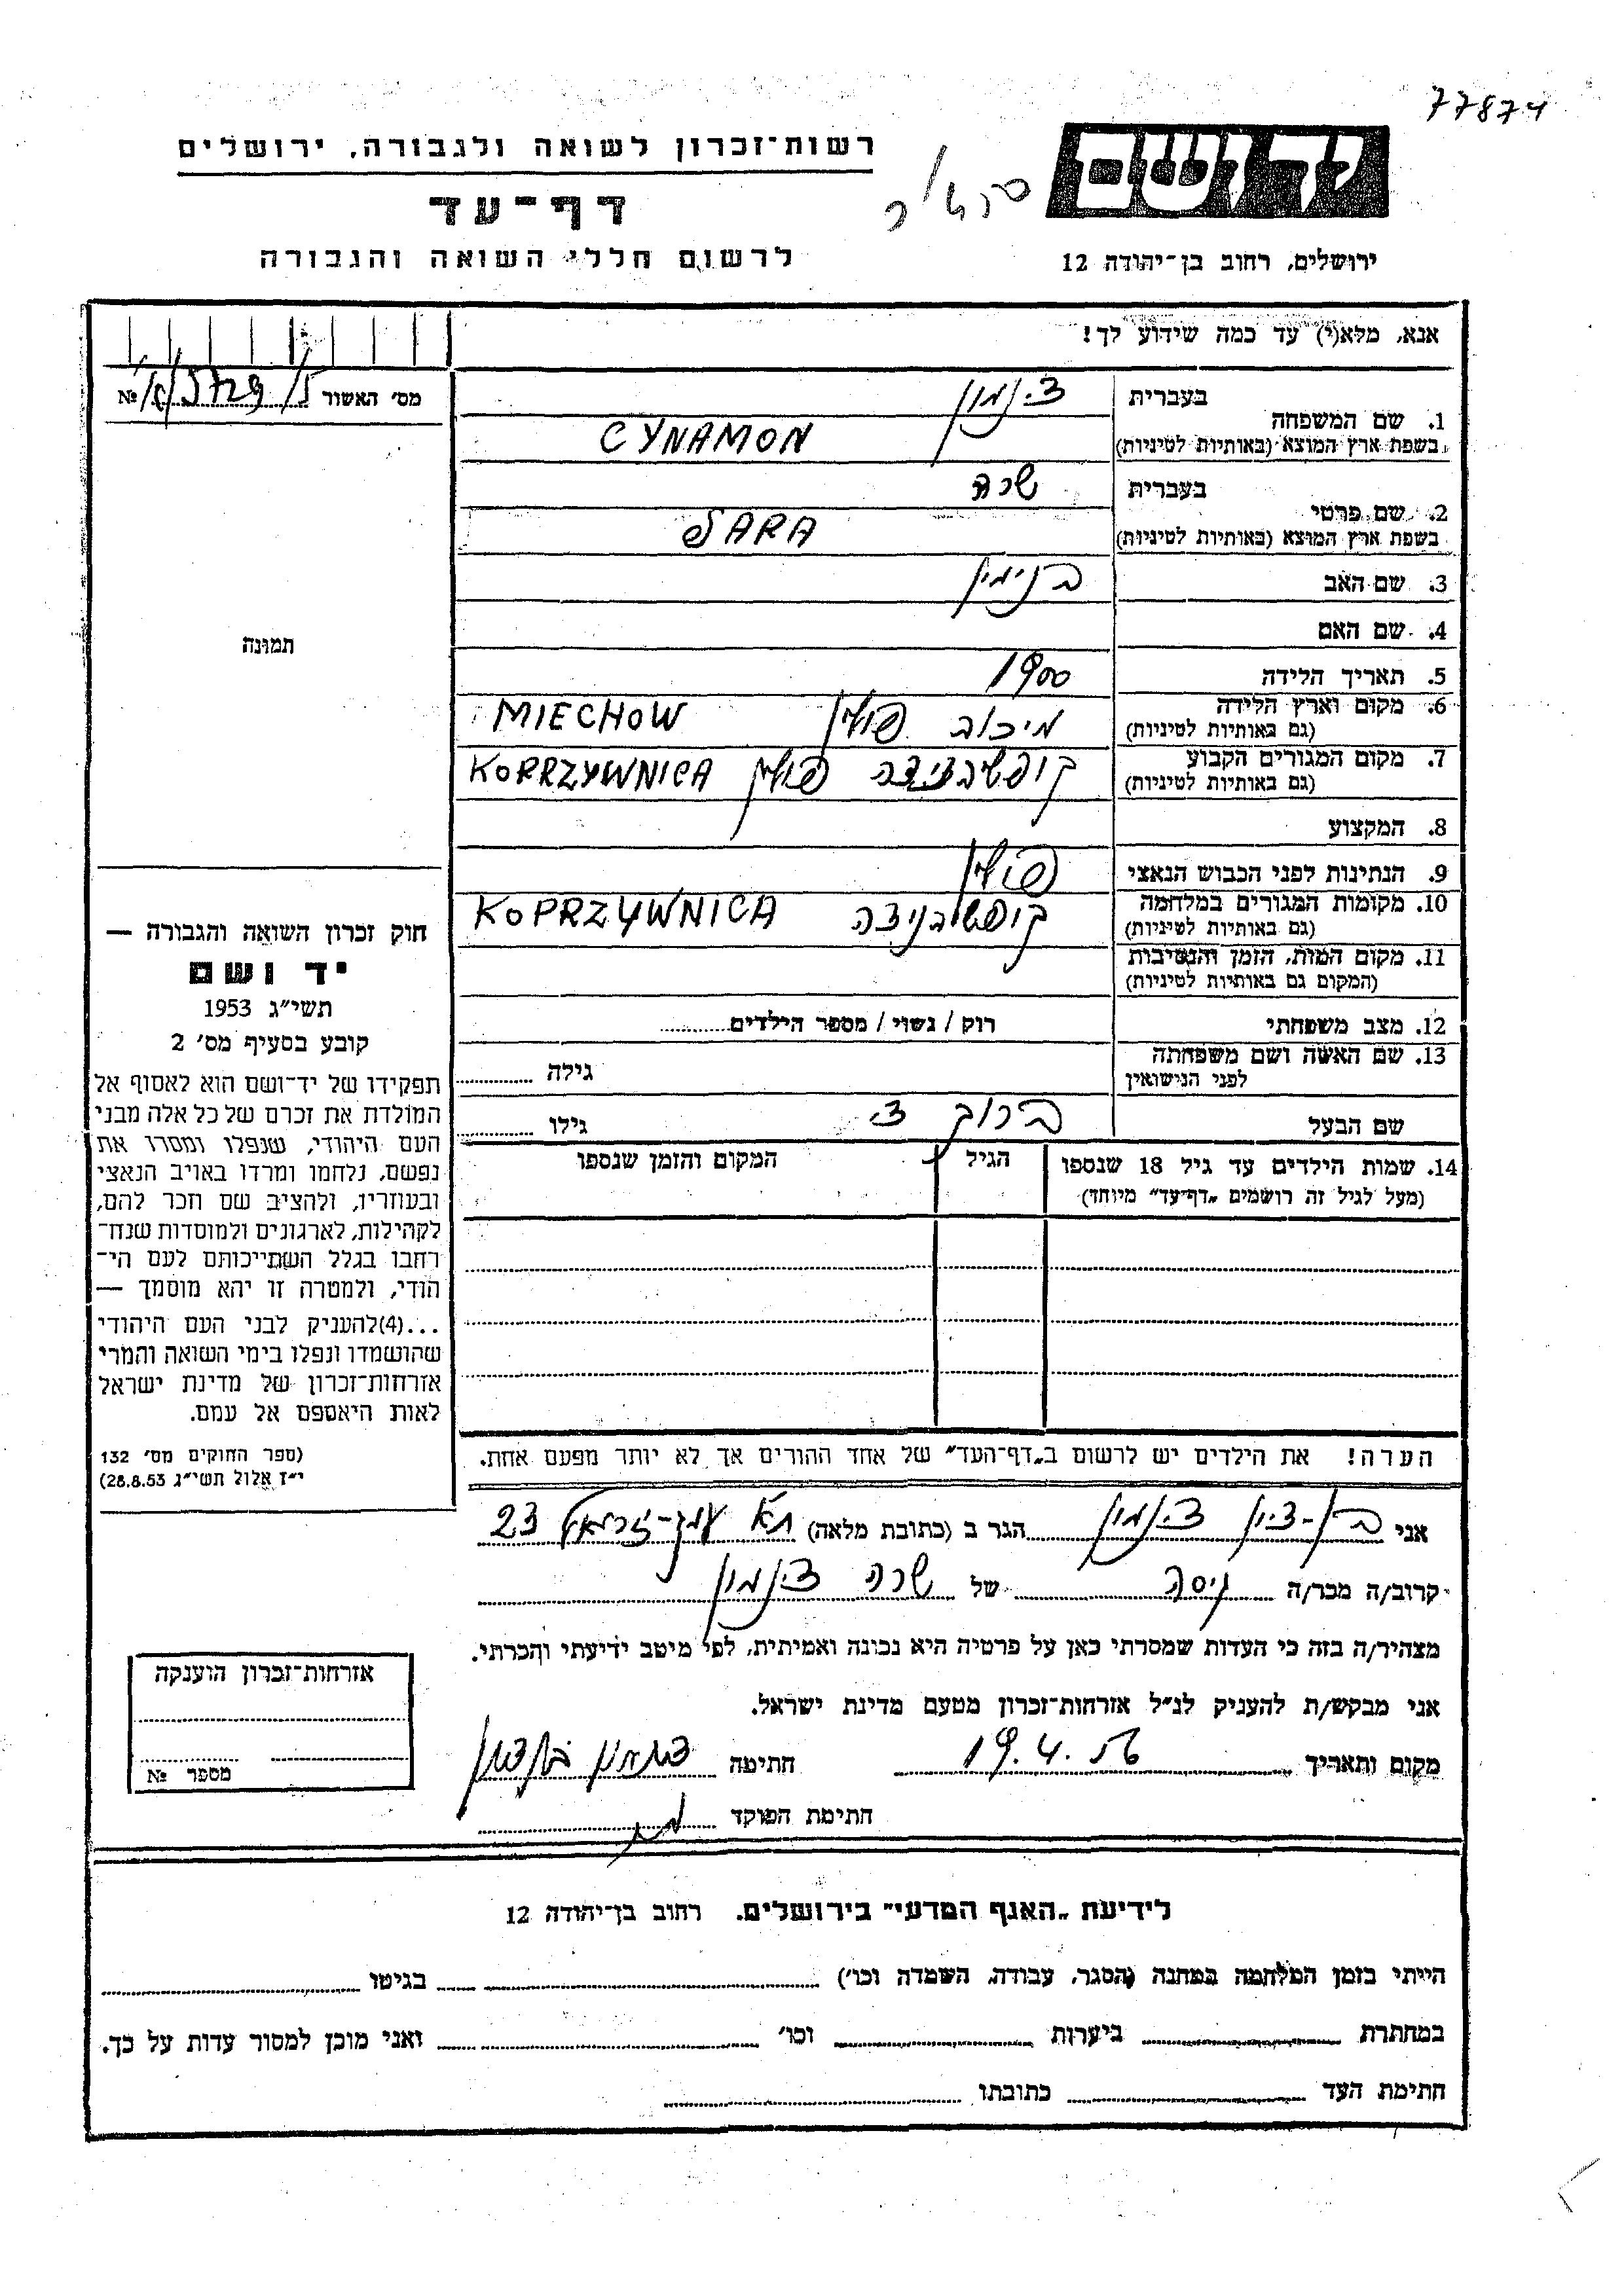 77874
רשות־זכרון לשואה ולגבורה, ירושלים
יד ושם
דף־עד
לרשום חללי השואה והגבורה
ירושלים, רחוב בן־יהודה 12
אנא, מלא(י) עד כמה שידוע לך!
מס' האשור № 
בעברית צינמון
1. שם המשפחה
בשפת ארץ המוצא (באותיות לטיניות) CYNAMON
בעברית שרה
2. שם פרטי
בשפת ארץ המוצא (באותיות לטיניות) SARA
3. שם האב בנימין
4. שם האם
תמונה
5. תאריך הלידה 1900
6. מקום וארץ הלידה מיכוב פולין MIECHOW
(גם באותיות לטיניות)
7. מקום המגורים הקבוע קופשבניצה פולין KOPRZYWNICA
(גם באותיות לטיניות)
8. המקצוע
9. הנתינות לפני הכבוש הנאצי פולין
10. מקומות המגורים במלחמה קופשיבניצה KOPRZYWNICA
(גם באותיות לטיניות)
11. מקום המות, הזמן והנסיבות
(המקום גם באותיות לטיניות)
12. מצב משפחתי רוק / נשוי / מספר הילדים
13. שם האשה ושם משפחתה
לפני הנישואין גילה
שם הבעל ברוך צ. גילו
14. שמות הילדים עד גיל 18 שנספו הגיל המקום והזמן שנספו
(מעל לגיל זה רושמים „דף־עד" מיוחד)
חוק זכרון השואה והגבורה —
יד ושם
תשי"ג 1953
קובע בסעיף מס' 2
תפקידו של יד־ושם הוא לאסוף אל
המולדת את זכרם של כל אלה מבני
העם היהודי, שנפלו ומסרו את
נפשם, נלחמו ומרדו באויב הנאצי
ובעוזריו, ולהציב שם וזכר להם,
לקהילות, לארגונים ולמוסדות שנח־
רחבו בגלל השתייכותם לעם הי־
הודי, ולמטרה זו יהא מוסמך —
...(4)להעניק לבני העם היהודי
שהושמדו ונפלו בימי השואה והמרי
אזרחות־זכרון של מדינת ישראל
לאות היאספם אל עמם.
(ספר החוקים מס' 132
י"ז אלול תשי"ג 28.8.53)
הערה! את הילדים יש לרשום ב„דף־העד" של אחד ההורים אך לא יותר מפעם אחת.
אני בן-ציון צינמון הגר ב (כתובת מלאה) ת"א עמק-יזרעאל 23
קרוב/ה מכר/ה גיסה של שרה צינמון
מצהיר/ה בזה כי העדות שמסרתי כאן על פרטיה היא נכונה ואמיתית, לפי מיטב ידיעתי והכרתי.
אני מבקש/ת להעניק לנ"ל אזרחות־זכרון מטעם מדינת ישראל.
מקום ותאריך 19.4.56 חתימה
חתימת הפוקד
אזרחות־זכרון הוענקה
מספר №
לידיעת „האגף המדעי" בירושלים, רחוב בן־יהודה 12
הייתי בזמן המלחמה במחנה (הסגר, עבודה, השמדה וכו') בגיטו
במחתרת ביערות וכו' ואני מוכן למסור עדות על כך.
חתימת העד כתובתו